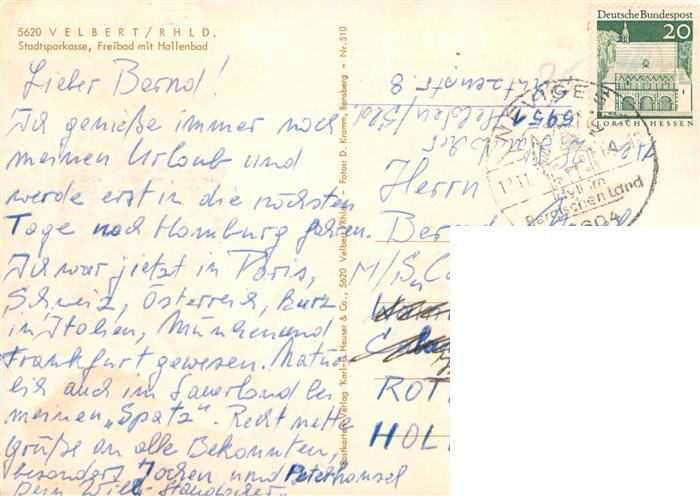 5620 VELBERT/RHLD.
Stadtsparkasse, Freibad mit Hallenbad
Lieber Bernd!
Ich genieße immer noch
meinen Urlaub und
werde erst in die nächsten
Tage nach Hamburg fahren.
Ich war jietzt in Paris,
Schweiz, Österreich, kurz
in Italien, München und
Frankfurt gewesen. Natür
lich auch im Sauerland bei
meinen "Spatz". Recht nette
Grüße an alle Bekannten,
besonders Jochen und Peterhansel
Dein Willi
Postkarten-Verlag Karl-E. Heuser & Co., 5620 Velbert/Rhld. - Fotos: D. Kramm, Bensberg - Nr. 510
Deutsche Bundespost
20
LORSCH/HESSEN
NEVIGES
12.11
Idyll im
Bergischen Land
5951
Herrn
M/S
ROT
HOL